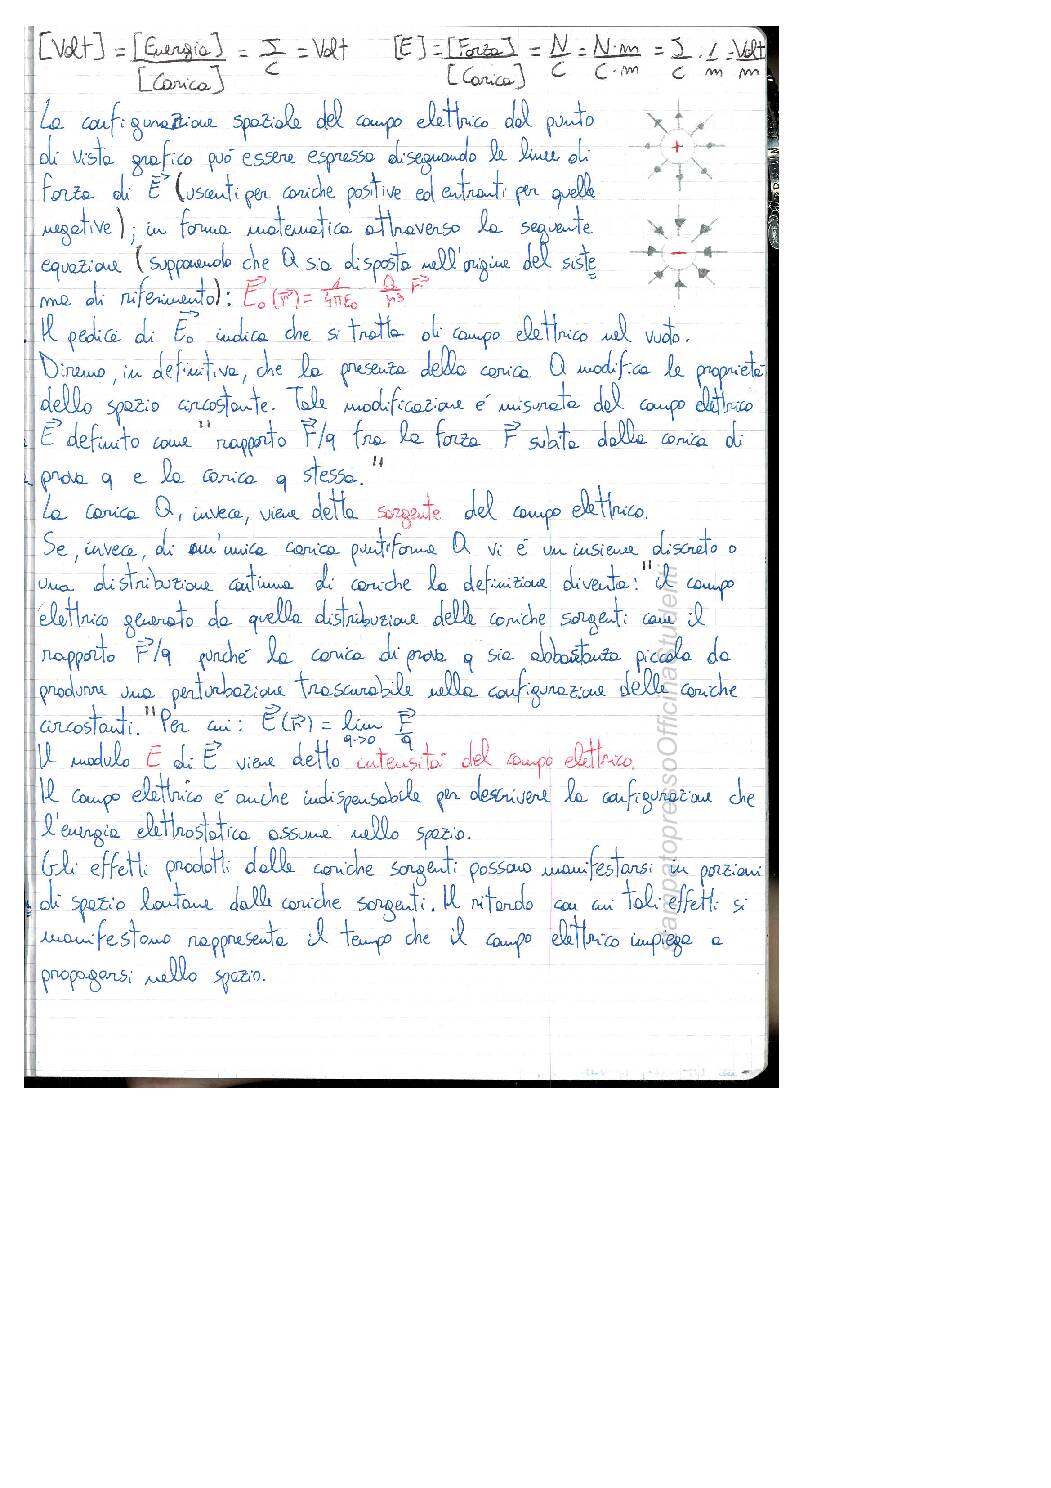 [Volt] = [Energia]/[Carica] = J/C = Volt [E] = [Forza]/[Carica] = N/C = N·m/C·m = J/C · 1/m = Volt/m
La configurazione spaziale del campo elettrico dal punto
di vista grafico può essere espressa disegnando le linee di
forza di E⃗ (uscenti per cariche positive ed entranti per quelle
negative); in forma matematica attraverso la seguente
equazione (supponendo che Q sia disposta nell'origine del siste
ma di riferimento): E⃗₀(r⃗) = 1/4πε₀ Q/r³ r⃗
+
-
Il pedice di E⃗₀ indica che si tratta di campo elettrico nel vuoto.
Diremo, in definitiva, che la presenza della carica Q modifica le proprietà
dello spazio circostante. Tale modificazione è misurata dal campo elettrico
E⃗ definito come "rapporto F⃗/q fra la forza F⃗ subita dalla carica di
prova q e la carica q stessa."
La carica Q, invece, viene detta sorgente del campo elettrico.
Se, invece, di un'unica carica puntiforme Q vi è un insieme discreto o
una distribuzione continua di cariche la definizione diventa: "il campo
elettrico generato da quella distribuzione delle cariche sorgenti come il
rapporto F⃗/q purché la carica di prova q sia abbastanza piccola da
produrre una perturbazione trascurabile nella configurazione delle cariche
circostanti." Per cui: E⃗(r⃗) = lim q→0 F⃗/q
Il modulo E di E⃗ viene detto intensità del campo elettrico.
Il campo elettrico è anche indispensabile per descrivere la configurazione che
l'energia elettrostatica assume nello spazio.
Gli effetti prodotti dalle cariche sorgenti possono manifestarsi in porzioni
di spazio lontane dalle cariche sorgenti. Il ritardo con cui tali effetti si
manifestano rappresenta il tempo che il campo elettrico impiega a
propagarsi nello spazio.
stampatopressoOfficinastudenti